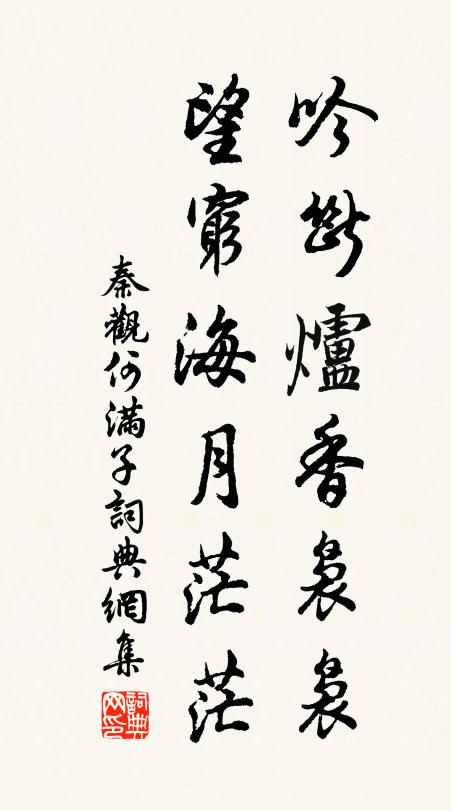 吟斷爐香裊裊
望窮海月茫茫
秦觀何滿子詞典網集
詞典網印